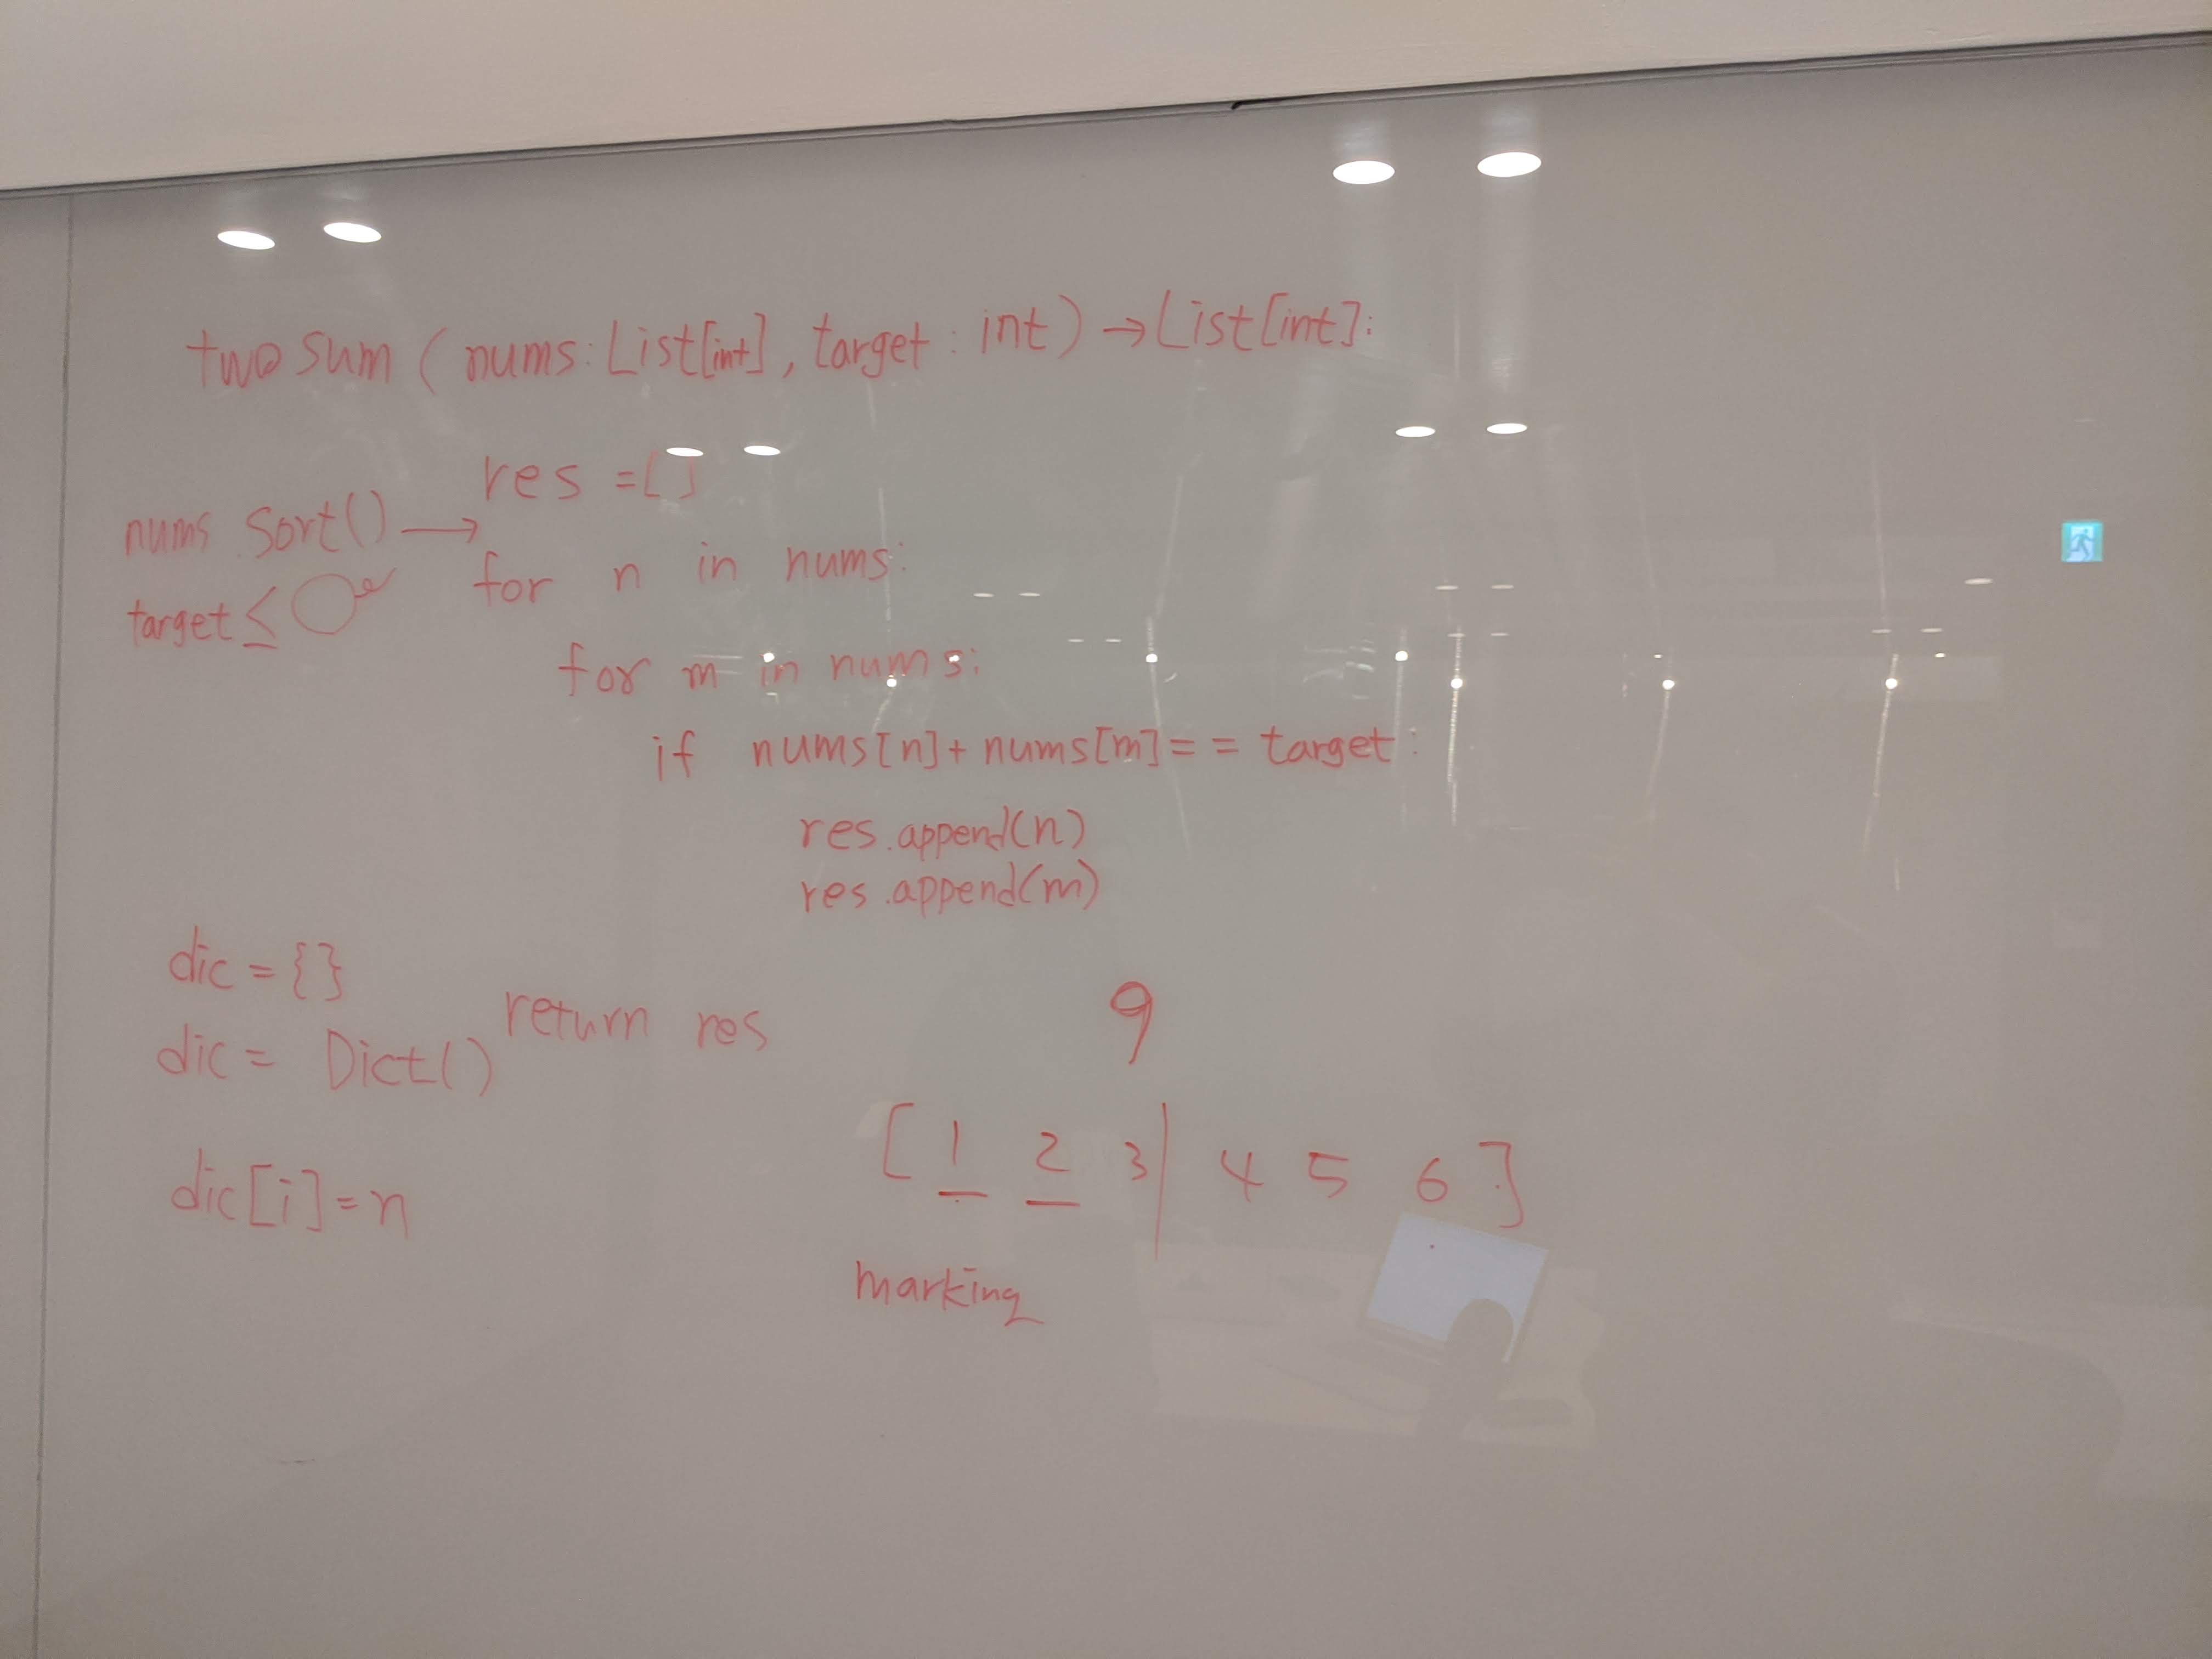 two sum ( nums: List[int], target : int) → List[int]:
res = []
nums. Sort() →
for n in nums:
target ≤
for m in nums:
if nums[n] + nums[m] == target :
res.append(n)
res.append(m)
dic = {}
return res
dic = Dict()
dic[i] = n
9
[ 1 2 3 | 4 5 6 ]
marking